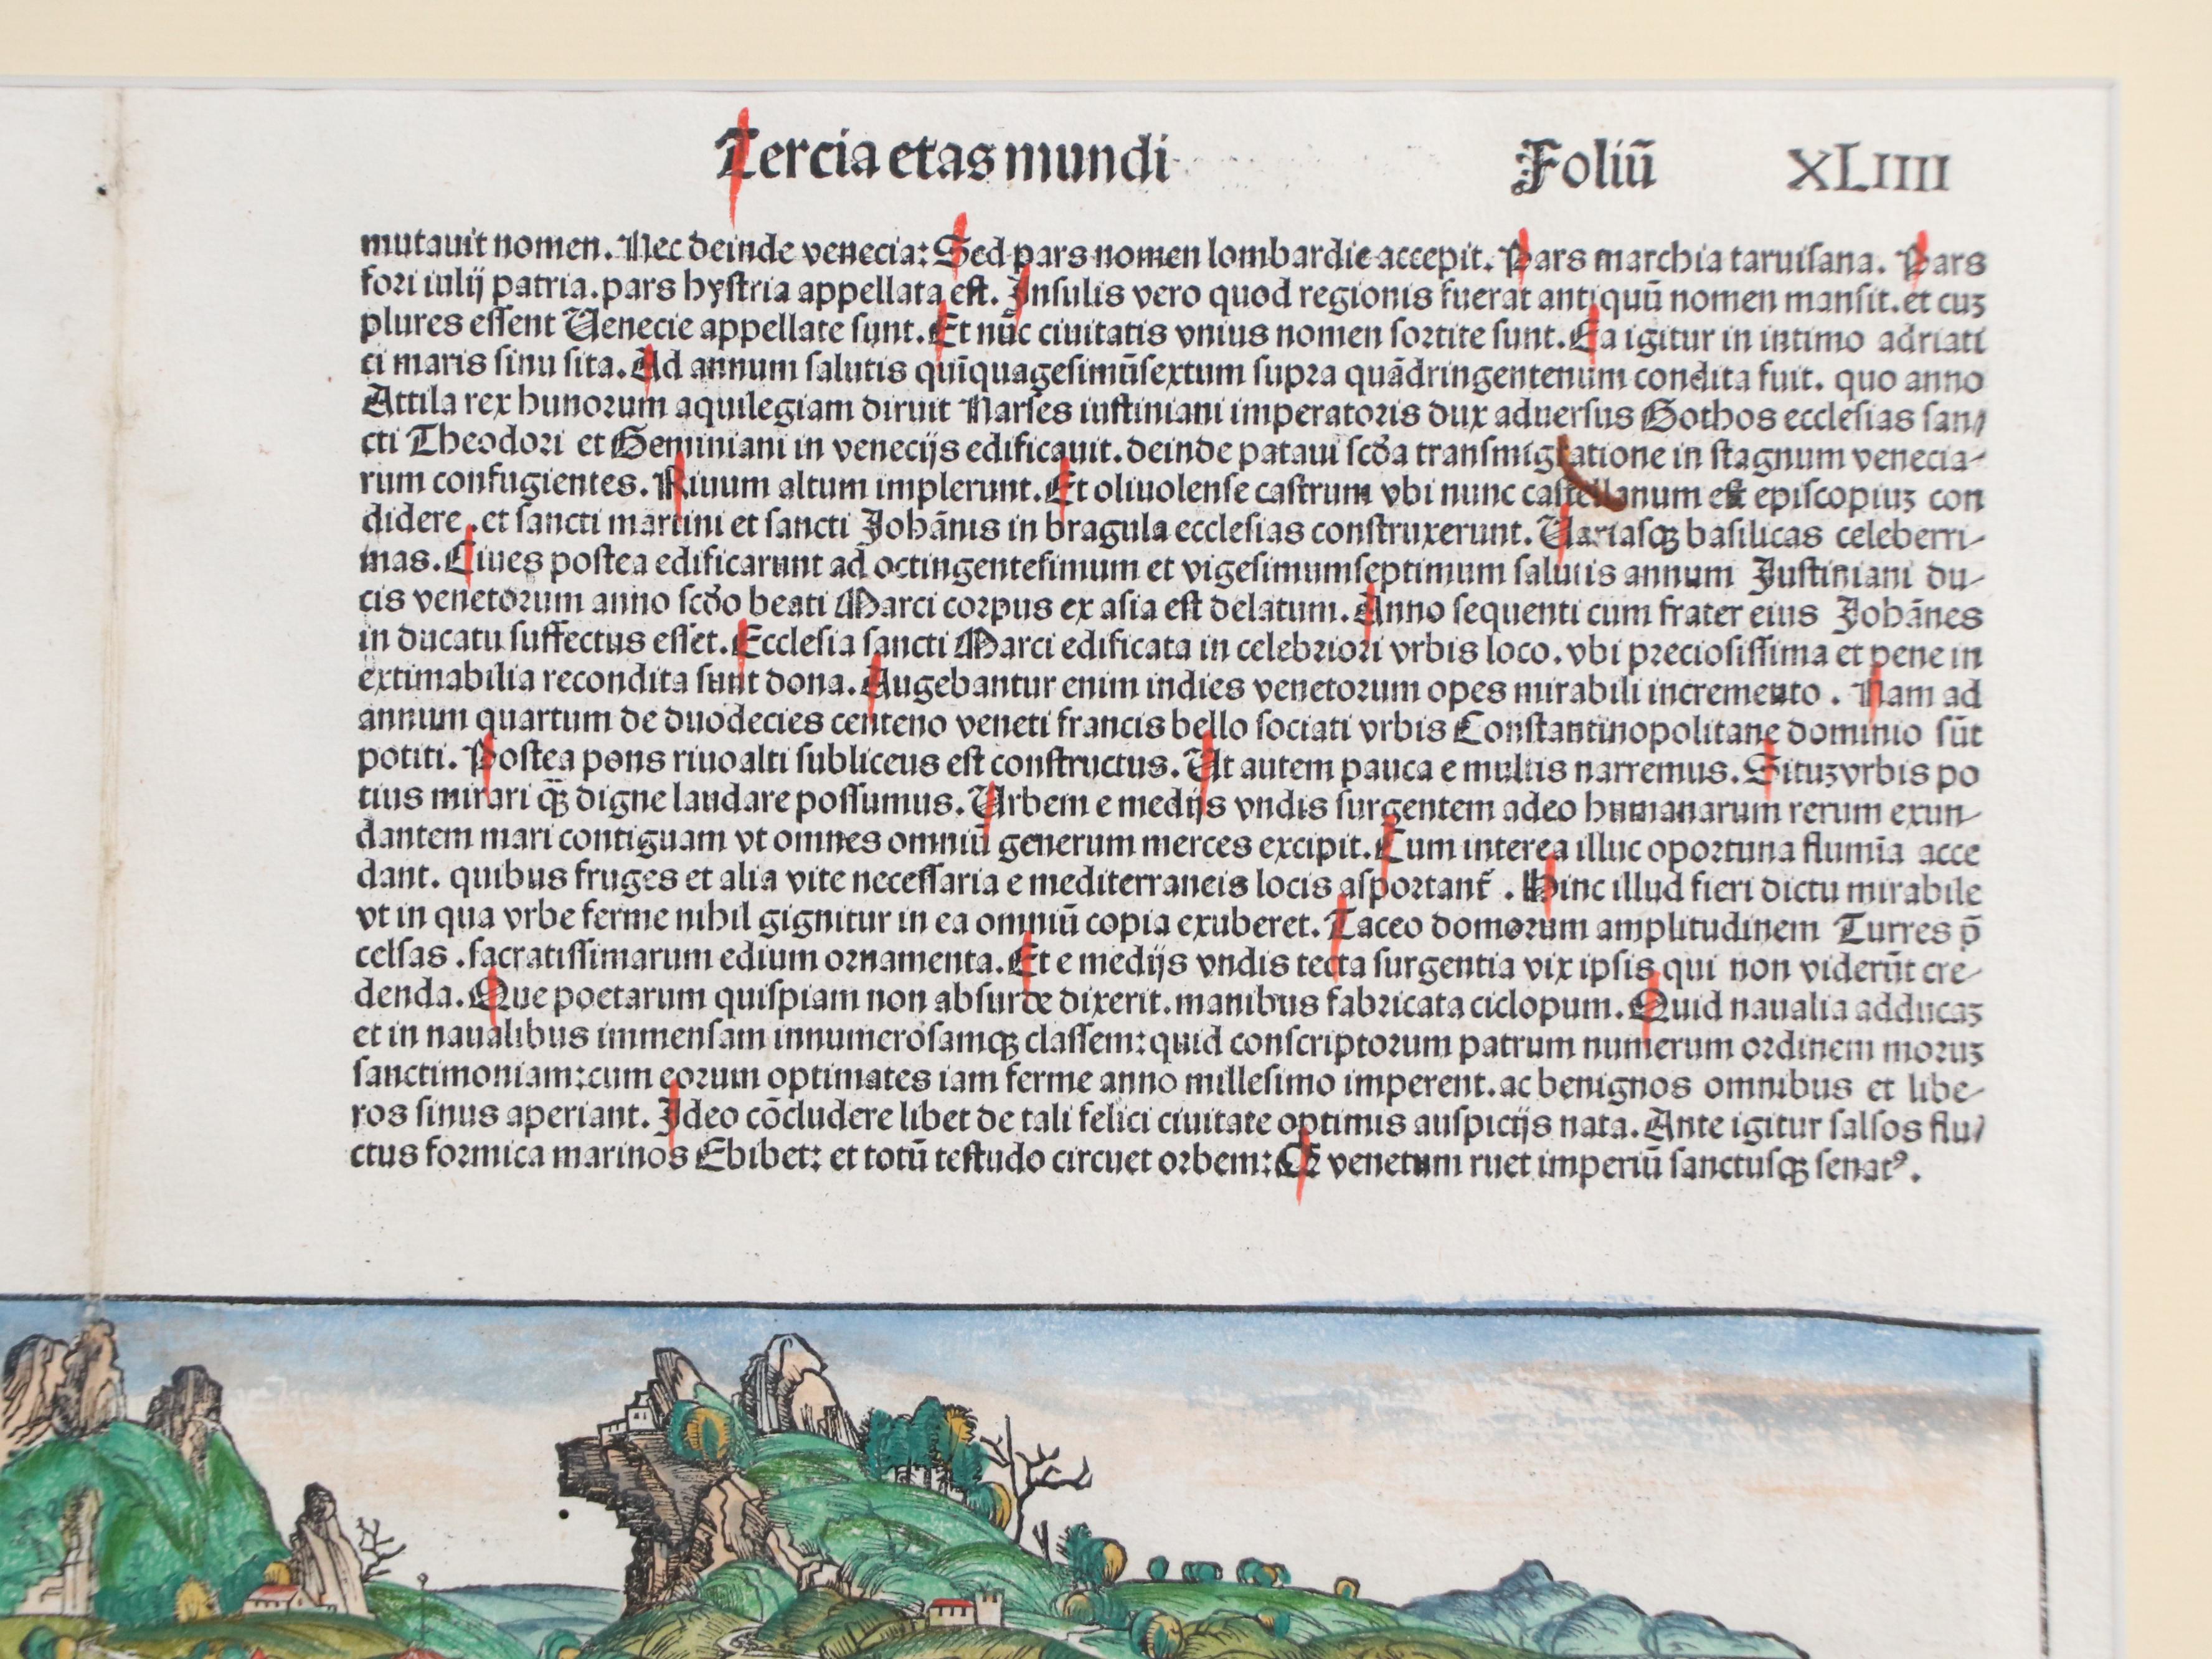 Tercia etas mundi Foliū XLIIII
mutauit nomen. Nec deinde venecia: Sed pars nomen lombardie accepit. Pars marchia taruisana. Pars
fori iulij patria. pars hystria appellata est. Insulis vero quod regionis fuerat antiquū nomen mansit. et cuʒ
plures essent Uenecie appellate sunt. Et nūc ciuitatis vnius nomen sortite sunt. Ea igitur in intimo adriati
ci maris sinu sita. Ad annum salutis quīquagesimūsextum supra quādringentenum condita fuit. quo anno
Attila rex hunorum aquilegiam diruit Narses iustiniani imperatoris dux aduersus Gothos ecclesias san/
cti Theodori et Geminiani in venecijs edificauit. deinde pataui scd̄a transmigratione in stagnum venecia-
rum confugientes. Riuum altum implerunt. Et oliuolense castrum vbi nunc castellanum est episcopiuʒ con
didere. et sancti martini et sancti Johānis in bragula ecclesias construxerunt. Uariasqꝫ basilicas celeberri-
mas. Ciues postea edificarunt ad octingentesimum et vigesimumseptimum salutis annum Justiniani du-
cis venetorum anno scd̄o beati Marci corpus ex asia est delatum. Anno sequenti cum frater eius Johānes
in ducatu suffectus esset. Ecclesia sancti Marci edificata in celebriori vrbis loco. vbi preciosissima et pene in
extimabilia recondita sunt dona. Augebantur enim indies venetorum opes mirabili incremento. Nam ad
annum quartum de duodecies centeno veneti francis bello sociati vrbis Constantinopolitane dominio sūt
potiti. Postea pons riuoalti subliceus est constructus. Ut autem pauca e multis narremus. Situʒ vrbis po
tius mirari qꝫ̄ digne laudare possumus. Urbem e medijs vndis surgentem adeo humanarum rerum exun-
dantem mari contiguam vt omnes omniū generum merces excipit. Cum interea illuc oportuna flumīa acce
dant. quibus fruges et alia vite necessaria e mediterraneis locis asportant̄. Hinc illud fieri dictu mirabile
vt in qua vrbe ferme nihil gignitur in ea omniū copia exuberet. Taceo domorum amplitudinem Turres p̄
celsas. sacratissimarum edium ornamenta. Et e medijs vndis tecta surgentia vix ipsis qui non viderūt cre-
denda. Que poetarum quispiam non absurde dixerit. manibus fabricata ciclopum. Quid naualia adducaʒ
et in naualibus immensam innumerosamqꝫ classem: quid conscriptorum patrum numerum ordinem moruʒ
sanctimoniam: cum eorum optimates iam ferme anno millesimo imperent. ac benignos omnibus et libe-
ros sinus aperiant. Ideo cōcludere libet de tali felici ciuitate optimis auspicijs nata. Ante igitur salsos flu/
ctus formica marinos Ebibet: et totū testudo circuet orbem: Qꝫ venetum ruet imperiū sanctusqꝫ senatꝰ.